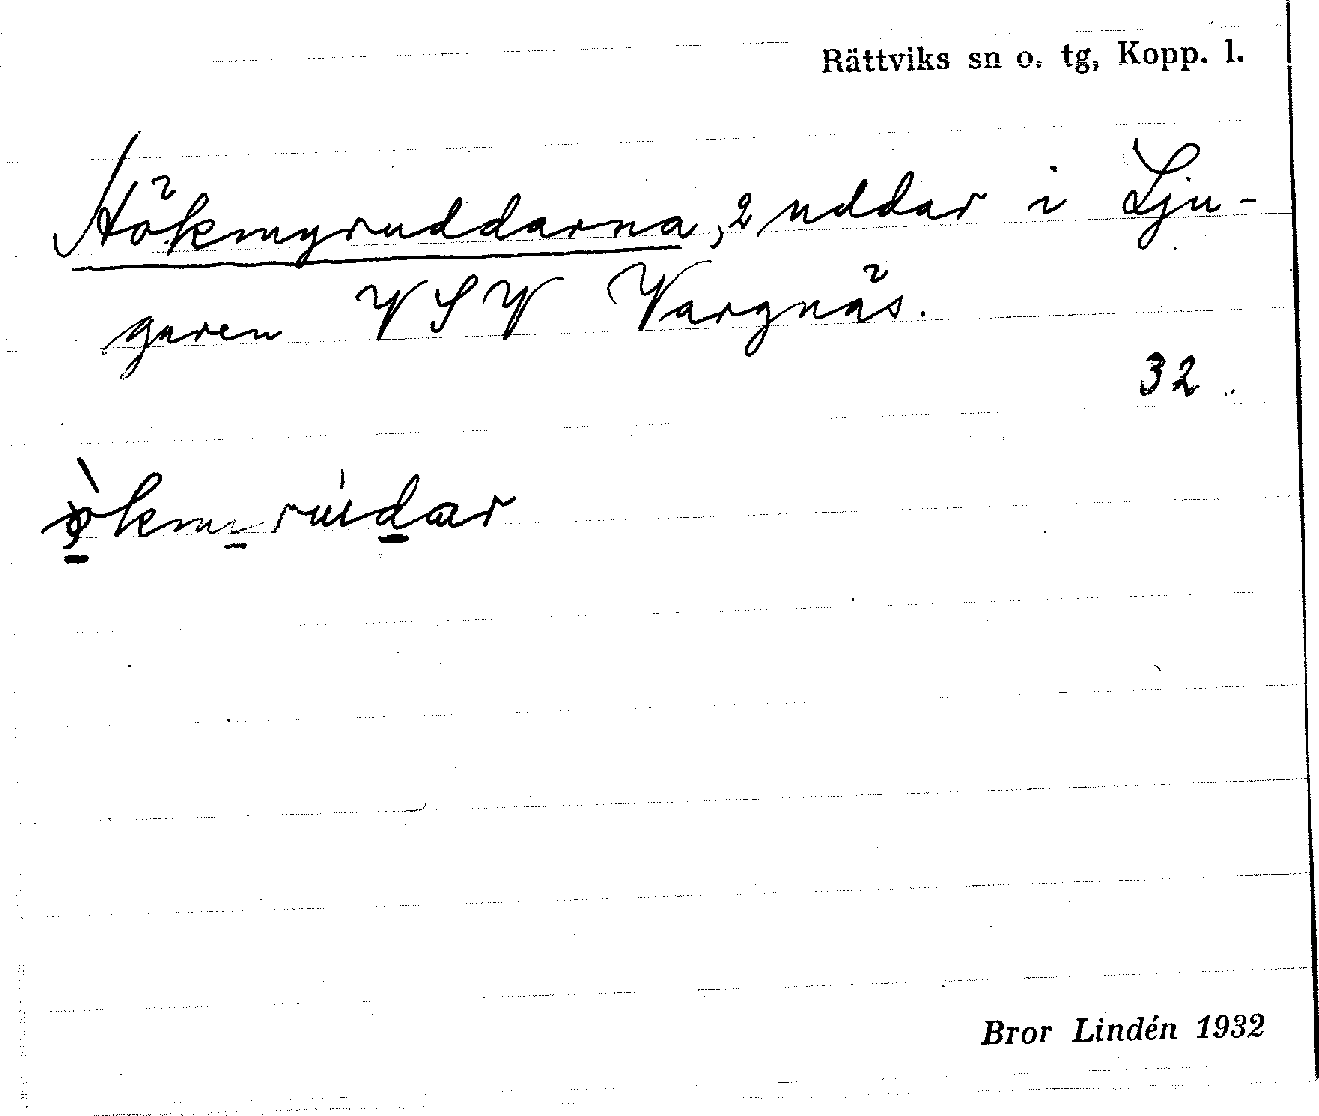 Rättviks sn o. tg, Kopp. l.
Hökmyruddarna, 2 uddar i Lju-
garen VSV Vargnäs.
32.
Bror Lindén 1932